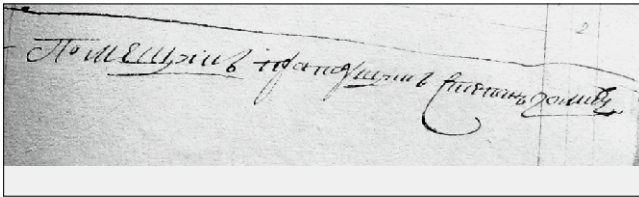 2
Помещикъ прапорщикъ Степанъ